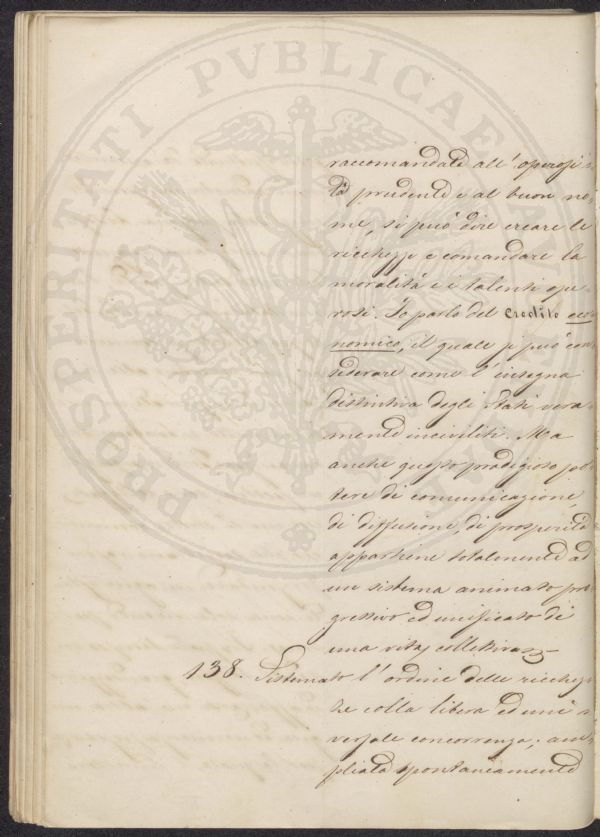 PROSPERITATI PVBLICAE
raccomandata all' operosi-
tà prudente e al buon no-
me, si può dire creare le
ricchezze e comandare la
moralità e i talenti ope-
rosi. Io parlo del credito eco-
nomico, il quale si può con-
siderare come l' insegna
distintiva degli Stati vera-
mente inciviliti. Ma
anche questo prodigioso po-
tere di comunicazione,
di diffusione, di prosperità
appartiene totalmente ad
un sistema animato pro-
gressivo ed unificato di
una vita collettiva
138. Sistemato l' ordine delle ricchez-
ze colla libera ed uni-
versale concorrenza; am-
pliata spontaneamente